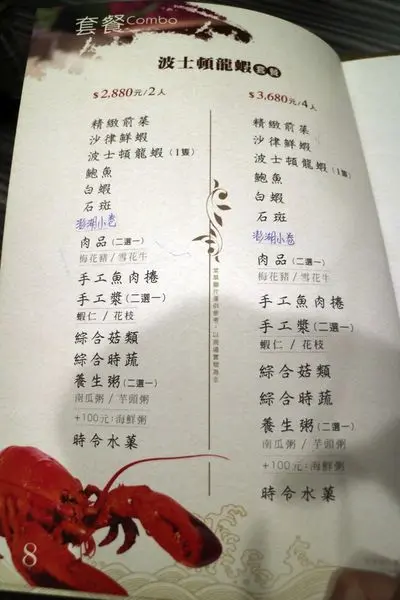 套餐Combo
波士頓龍蝦套餐
$2,880元/2人
精緻前菜
沙律鮮蝦
波士頓龍蝦(1隻)
鮑魚
白蝦
石斑
澎湖小卷
肉品(二選一)
梅花豬/雪花牛
手工魚肉捲
手工漿(二選一)
蝦仁/花枝
綜合菇類
綜合時蔬
養生粥(二選一)
南瓜粥/芋頭粥
+100元:海鮮粥
時令水菓
$3,680元/4人
精緻前菜
沙律鮮蝦
波士頓龍蝦(1隻)
鮑魚
白蝦
石斑
澎湖小卷
肉品(二選一)
梅花豬/雪花牛
手工魚肉捲
手工漿(二選一)
蝦仁/花枝
綜合菇類
綜合時蔬
養生粥(二選一)
南瓜粥/芋頭粥
+100元:海鮮粥
時令水菓
菜單圖片僅供參考,以現場實物為主
8